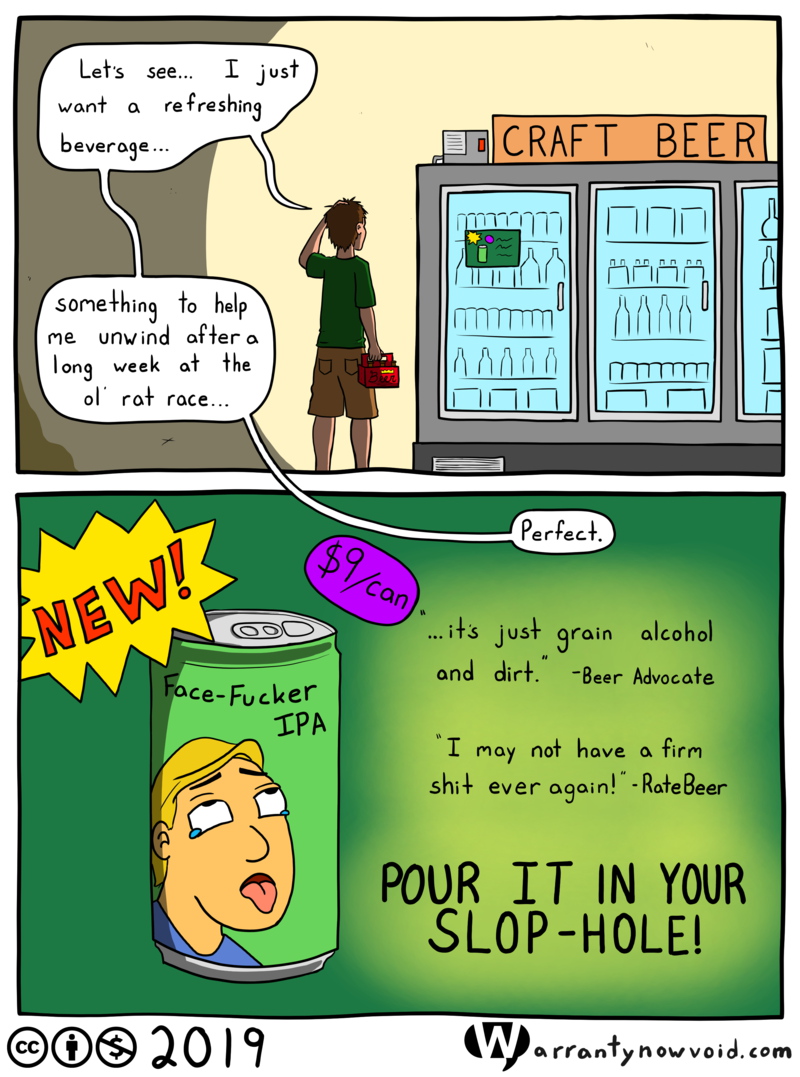 Let's see... I just
want a refreshing
beverage...
CRAFT BEER
something to help
me unwind after a
long week at the
ol' rat race...
Perfect.
NEW!
$9/can
Face-Fucker
IPA
"...it's just grain alcohol
and dirt." -Beer Advocate
"I may not have a firm
shit ever again!" -RateBeer
POUR IT IN YOUR
SLOP-HOLE!
cc
2019
Warrantynowvoid.com